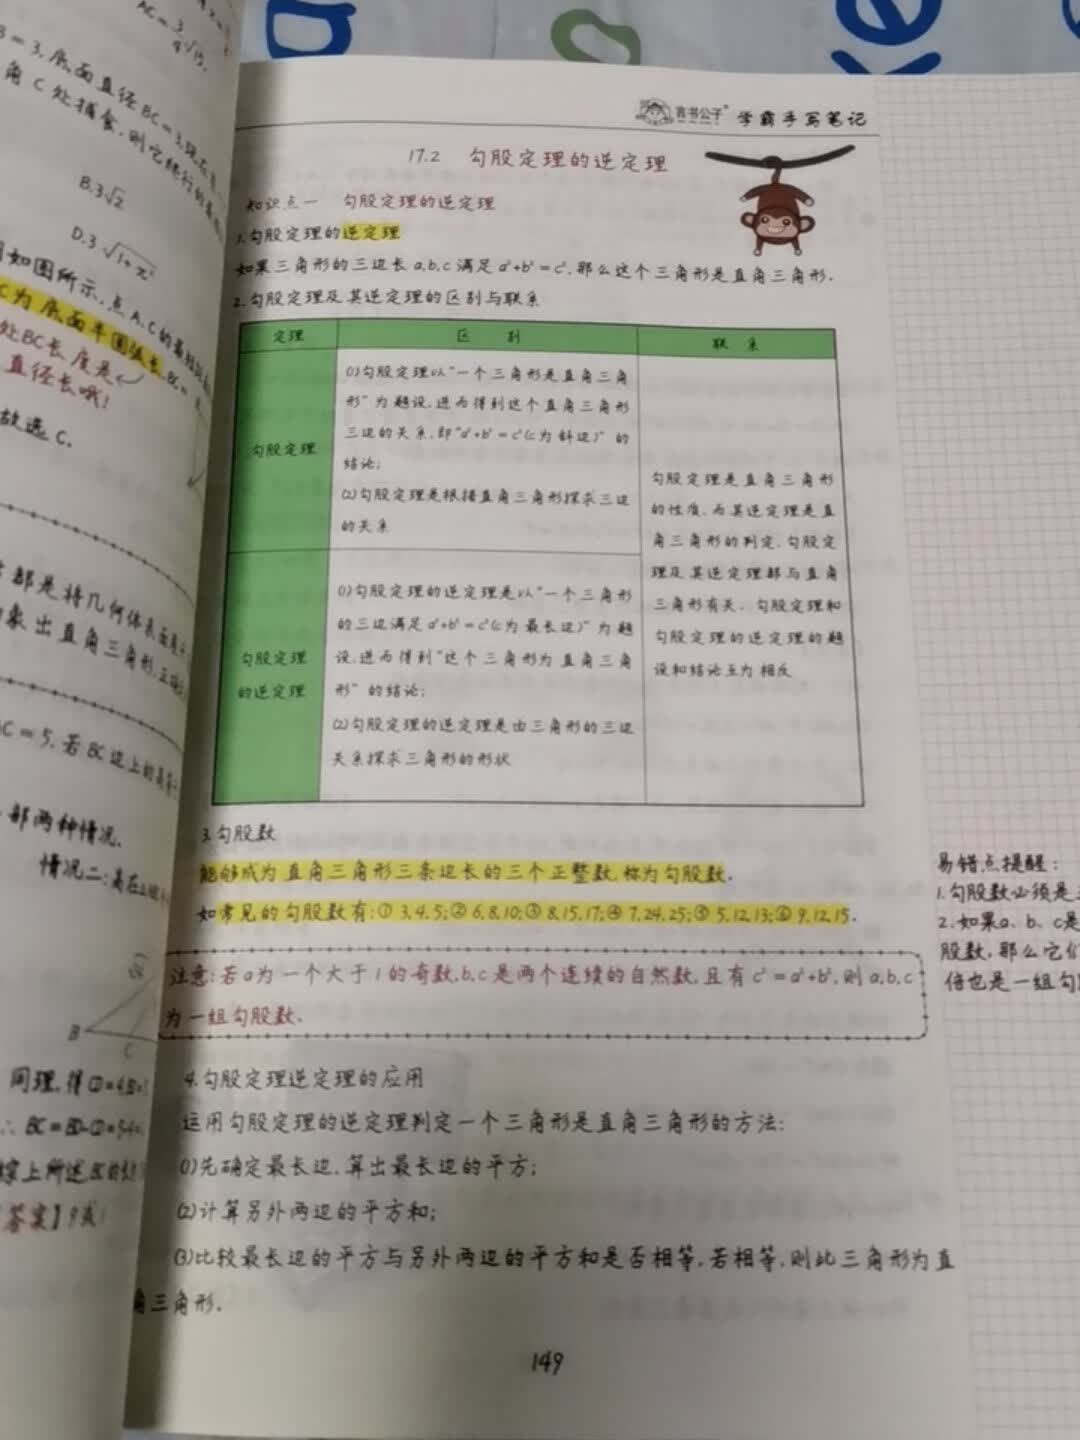 AC=3/4√15.
B=3,底面直径BC=3,
角C处捕食,则它绕行的
B.3√2
D.3√(1+π²)
如图所示,点A,C的
C为底面半圆弧长,BC=
处BC长度是
直径长哦!
故选C.
都是将几何体表面展
象出直角三角形,
C=5,若BC边上的高
部两种情况.
情况二:高在
B
C
同理,得
综上所述
【答案】9或1
言书公子 学霸手写笔记
17.2 勾股定理的逆定理
知识点一 勾股定理的逆定理
1.勾股定理的逆定理
如果三角形的三边长a,b,c满足a²+b²=c²,那么这个三角形是直角三角形.
2.勾股定理及其逆定理的区别与联系
定理 区别 联系
勾股定理
(1)勾股定理以"一个三角形是直角三角
形"为题设,进而得到这个直角三角形
三边的关系,即"a²+b²=c²(c为斜边)"的
结论;
(2)勾股定理是根据直角三角形探求三边
的关系
勾股定理
的逆定理
(1)勾股定理的逆定理是以"一个三角形
的三边满足a²+b²=c²(c为最长边)"为题
设,进而得到"这个三角形为直角三角
形"的结论;
(2)勾股定理的逆定理是由三角形的三边
关系探求三角形的形状
勾股定理是直角三角形
的性质,而其逆定理是直
角三角形的判定,勾股定
理及其逆定理都与直角
三角形有关.勾股定理和
勾股定理的逆定理的题
设和结论互为相反
3.勾股数
能够成为直角三角形三条边长的三个正整数,称为勾股数.
如常见的勾股数有:①3,4,5;②6,8,10;③8,15,17;④7,24,25;⑤5,12,13;⑥9,12,15.
注意:若a为一个大于1的奇数,b,c是两个连续的自然数,且有c²=a²+b²,则a,b,c
为一组勾股数.
4.勾股定理逆定理的应用
运用勾股定理的逆定理判定一个三角形是直角三角形的方法:
(1)先确定最长边,算出最长边的平方;
(2)计算另外两边的平方和;
(3)比较最长边的平方与另外两边的平方和是否相等,若相等,则此三角形为直
角三角形.
149
易错点提醒:
1.勾股数必须是
2.如果a、b、c是
股数,那么它们
倍也是一组勾